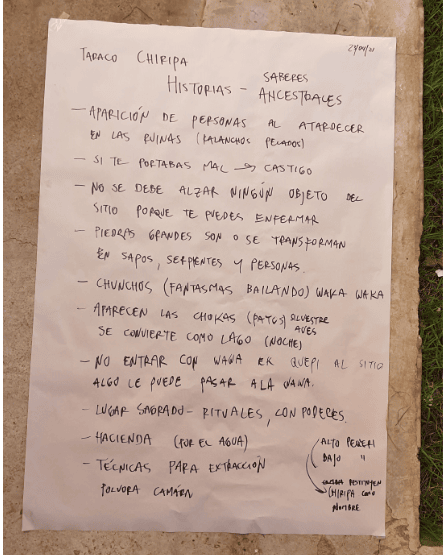 TARACO CHIRIPA
HISTORIAS - SABERES
ANCESTRALES
- APARICIÓN DE PERSONAS AL ATARDECER
EN LAS RUINAS (PELADOS)
- SI TE PORTABAS MAL → CASTIGO
- NO SE DEBE ALZAR NINGÚN OBJETO DEL
SITIO PORQUE TE PUEDES ENFERMAR
- PIEDRAS GRANDES SON O SE TRANSFORMAN
EN SAPOS, SERPIENTES Y PERSONAS.
- CHUNCHOS (FANTASMAS BAILANDO) WAKA WAKA
- APARECEN LAS CHOKAS (PATOS) SILVESTRE
AVES
SE CONVIERTE COMO LAGO (NOCHE)
- NO ENTRAR CON WAWA EN QUEPI AL SITIO
ALGO LE PUEDE PASAR A LA WAWA.
- LUGAR SAGRADO - RITUALES, CON PODERES.
- HACIENDA (POR EL AGUA)
- TÉCNICAS PARA EXTRACCIÓN
POLVORA
ALTO
BAJO "
CHIRIPA COMO
NOMBRE